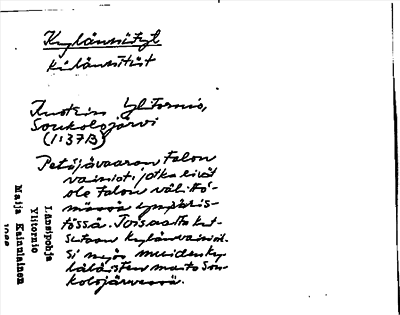 Kylänsityt
kilänsitüt
Ruotsin Ylitornio,
Soukolojärvi
(1:37B)
Petäjävaaran talon
vainiot, jotka eivät
ole talon välittö-
mässä ympäris-
tössä. Toisaalta kut-
sutaan kylänvainiot-
si myös muiden ky-
läläisten maita Sou-
kolojärvessä.
Länsipohja
Ylitornio
Maija Kainulainen